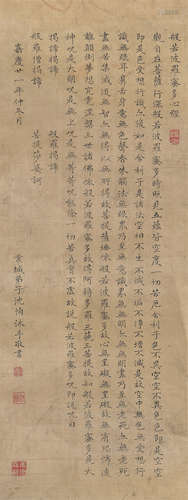 般若波羅蜜多心經
觀自在菩薩行深般若波羅蜜多時照見五蘊皆空度一切苦厄舍利子色不異空空不異色色即是空空
即是色受想行識亦復如是舍利子是諸法空相不生不滅不垢不淨不增不減是故空中無色無受想行
識無眼耳鼻舌身意無色聲香味觸法無眼界乃至無意識界無無明亦無無明盡乃至無老死亦無老死
盡無苦集滅道無智亦無得以無所得故菩提薩埵依般若波羅蜜多故心無罣礙無罣礙故無有恐怖遠
離顛倒夢想究竟涅槃三世諸佛依般若波羅蜜多故得阿耨多羅三藐三菩提故知般若波羅蜜多是大
神咒是大明咒是無上咒是無等等咒能除一切苦真實不虛故說般若波羅蜜多咒即說咒曰
揭諦揭諦 般羅揭諦
般羅僧揭諦 菩提莎婆訶
嘉慶廿一年仲冬月
弟子沈洵沐手敬書